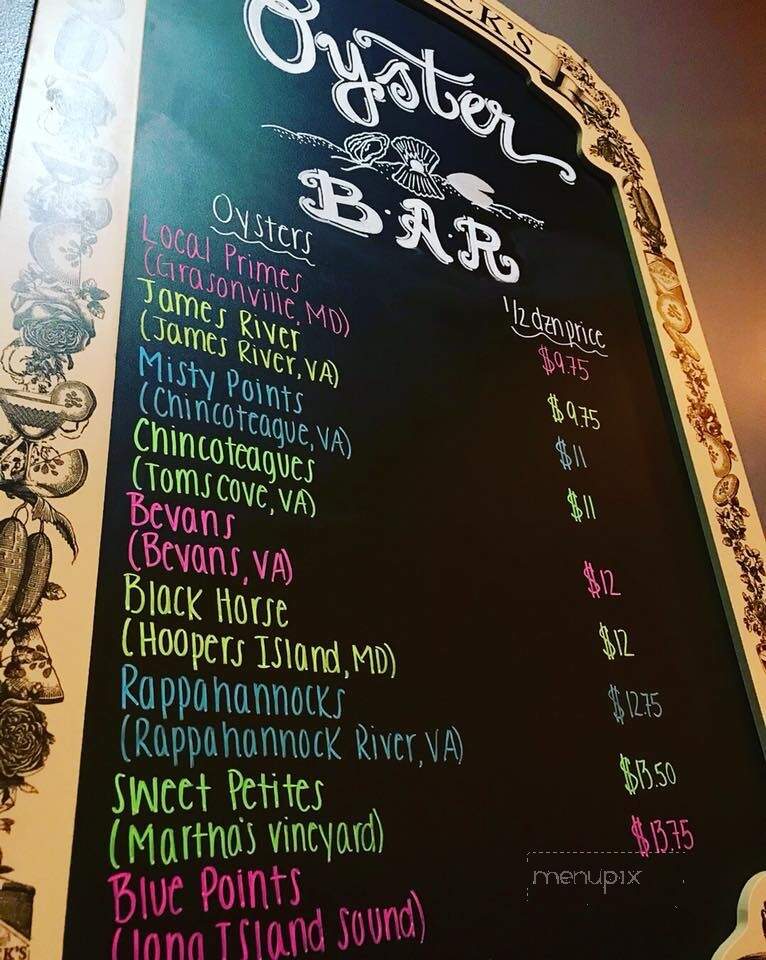 CK'S
Oyster
B.A.R
Oysters 1/2 dzn price
Local Primes $9.75
(Grasonville, MD)
James River $9.75
(James River, VA)
Misty Points $11
(Chincoteague, VA)
Chincoteagues $11
(Toms cove, VA)
Bevans $12
(Bevans, VA)
Black Horse $12
(Hoopers Island, MD)
Rappahannocks $12.75
(Rappahannock River, VA)
Sweet Petites $13.50
(Martha's vineyard)
Blue Points $13.75
(Long Island Sound)
menupix
K'S